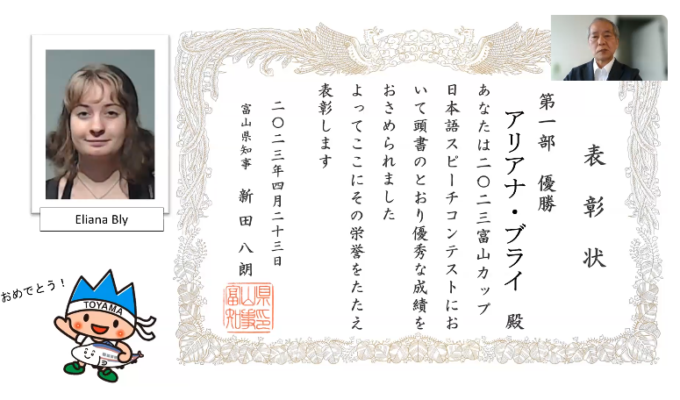 表彰状
第一部 優勝
アリアナ・ブライ 殿
あなたは二〇二三富山カップ
日本語スピーチコンテストにお
いて頭書のとおり優秀な成績を
おさめられました
よってここにその栄誉をたたえ
表彰します
二〇二三年四月二十三日
富山県知事 新田 八朗
Eliana Bly
おめでとう！
TOYAMA